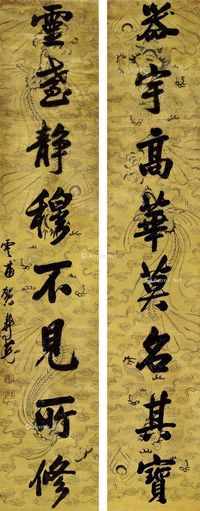 器宇高華英名其寶
靈臺静穆不見所修
雲甫賀壽慈